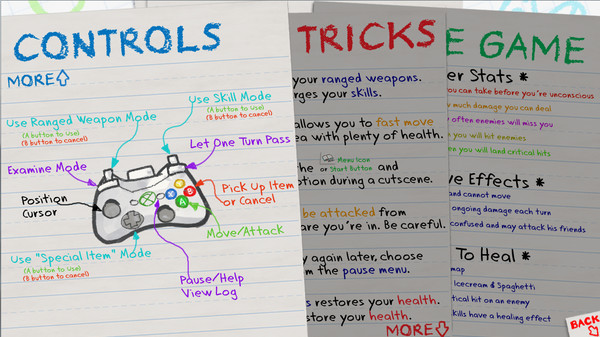 CONTROLS
MORE
Use Ranged Weapon Mode
(A button to use)
(B button to cancel)
Use Skill Mode
(A button to use)
(B button to cancel)
Examine Mode
Let One Turn Pass
Position
Cursor
Pick Up Item
or Cancel
Move/Attack
Use "Special Item" Mode
(A button to use)
(B button to cancel)
Pause/Help
View Log
X
Y
B
A
TRICKS
your ranged weapons.
rges your skills.
allows you to fast move
ea with plenty of health.
he Menu Icon or Start Button and
otion during a cutscene.
be attacked from
are you're in. Be careful.
y again later, choose
m the pause menu.
s restores your health.
store your health.
MORE
E GAME
er Stats *
you can take before you're unconscious
w much damage you can deal
often enemies will miss you
you will hit enemies
en you will land critical hits
ve Effects *
and cannot move
ongoing damage each turn
confused and may attack his friends
To Heal *
map
Icecream & Spaghetti
tical hit on an enemy
kills have a healing effect
BACK